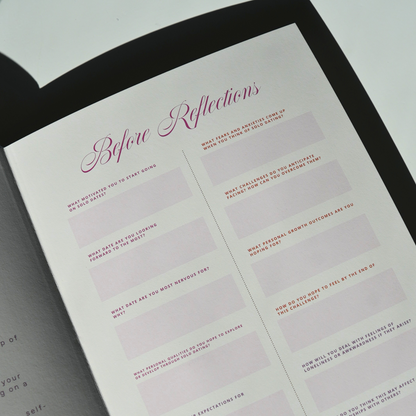 Before Reflections
WHAT MOTIVATED YOU TO START GOING
ON SOLO DATES?
WHAT DATE ARE YOU LOOKING
FORWARD TO THE MOST?
WHAT DATE ARE YOU MOST NERVOUS FOR?
WHY?
WHAT PERSONAL QUALITIES DO YOU HOPE TO EXPLORE
OR DEVELOP THROUGH SOLO DATING?
EXPECTATIONS FOR
WHAT FEARS AND ANXIETIES COME UP
WHEN YOU THINK OF SOLO DATING?
WHAT CHALLENGES DO YOU ANTICIPATE
FACING? HOW CAN YOU OVERCOME THEM?
WHAT PERSONAL GROWTH OUTCOMES ARE YOU
HOPING FOR?
HOW DO YOU HOPE TO FEEL BY THE END OF
THIS CHALLENGE?
HOW WILL YOU DEAL WITH FEELINGS OF
LONELINESS OR AWKWARDNESS IF THEY ARISE?
YOU THINK THIS MAY AFFECT
WITH OTHERS?
of
your
on a
self-